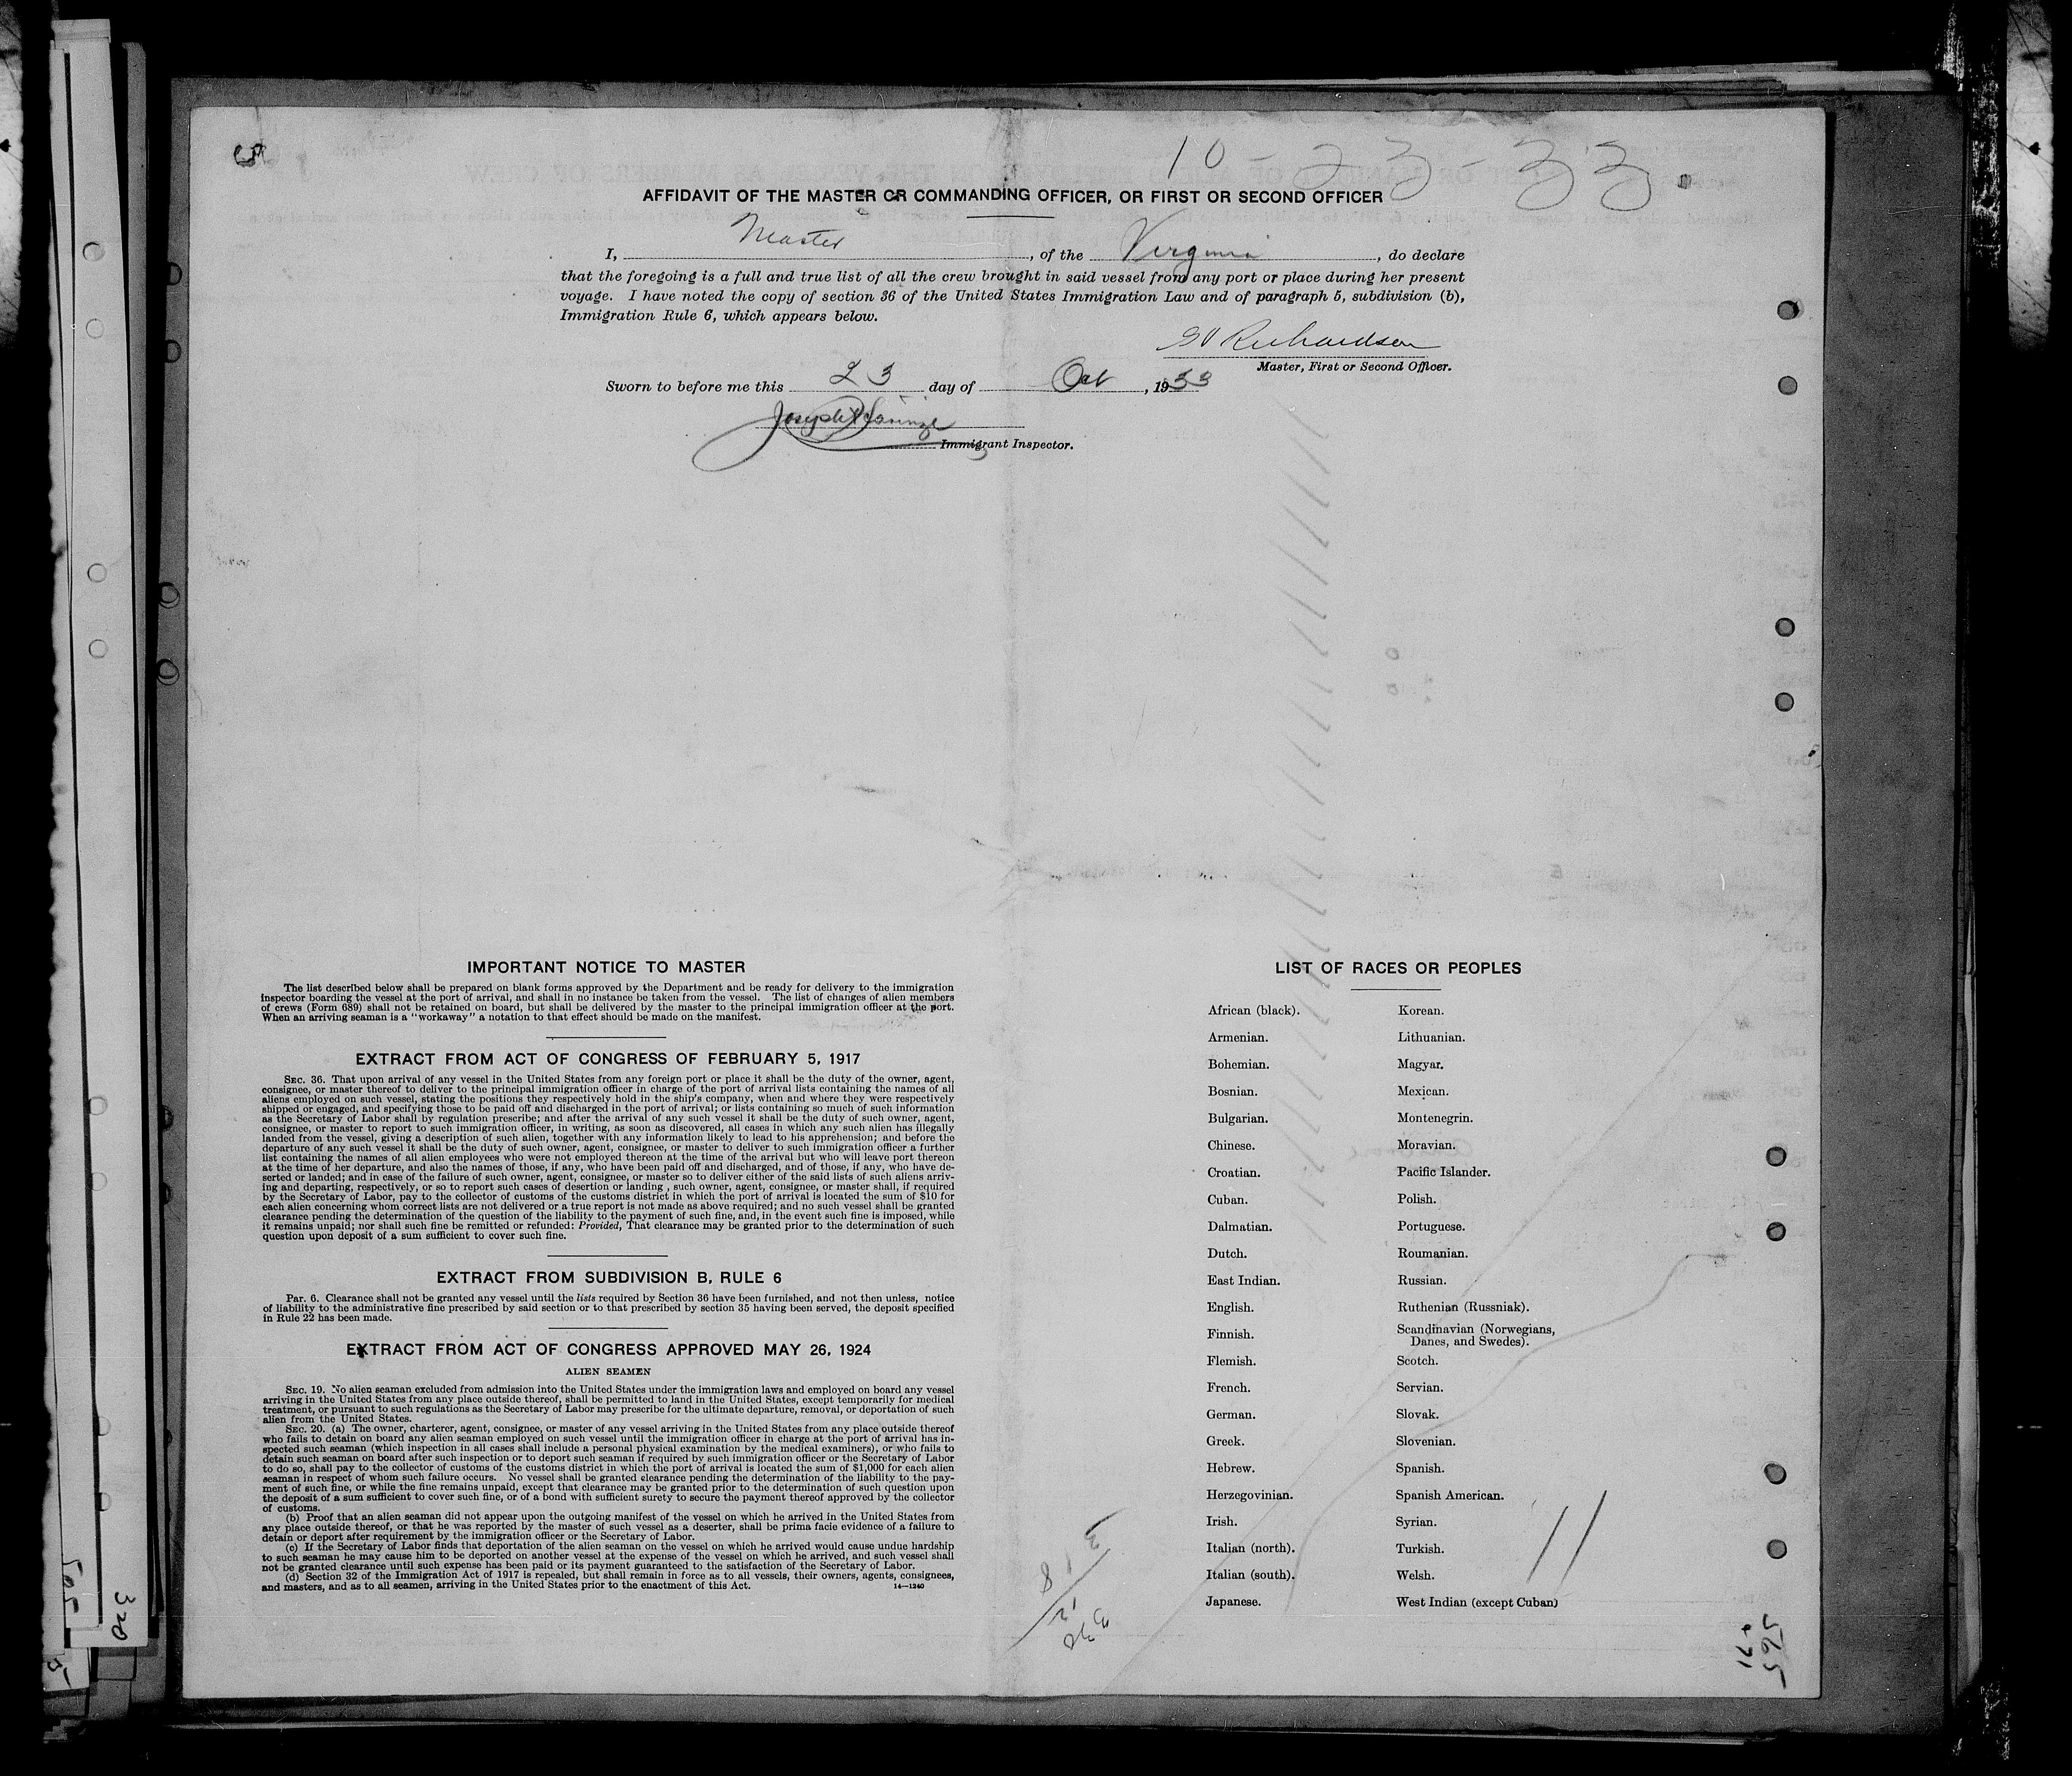 10-23-33
AFFIDAVIT OF THE MASTER OR COMMANDING OFFICER, OR FIRST OR SECOND OFFICER
I, Master, of the Virginia, do declare
that the foregoing is a full and true list of all the crew brought in said vessel from any port or place during her present
voyage. I have noted the copy of section 36 of the United States Immigration Law and of paragraph 5, subdivision (b),
Immigration Rule 6, which appears below.
Richardson
Master, First or Second Officer.
Sworn to before me this 23 day of Oct, 1933
Joseph
Immigrant Inspector.
IMPORTANT NOTICE TO MASTER
The list described below shall be prepared on blank forms approved by the Department and be ready for delivery to the immigration
inspector boarding the vessel at the port of arrival, and shall in no instance be taken from the vessel. The list of changes of alien members
of crews (Form 689) shall not be retained on board, but shall be delivered by the master to the principal immigration officer at the port.
When an arriving seaman is a "workaway" a notation to that effect should be made on the manifest.
EXTRACT FROM ACT OF CONGRESS OF FEBRUARY 5, 1917
SEC. 36. That upon arrival of any vessel in the United States from any foreign port or place it shall be the duty of the owner, agent,
consignee, or master thereof to deliver to the principal immigration officer in charge of the port of arrival lists containing the names of all
aliens employed on such vessel, stating the positions they respectively hold in the ship's company, when and where they were respectively
shipped or engaged, and specifying those to be paid off and discharged in the port of arrival; or lists containing so much of such information
as the Secretary of Labor shall by regulation prescribe; and after the arrival of any such vessel it shall be the duty of such owner, agent,
consignee, or master to report to such immigration officer, in writing, as soon as discovered, all cases in which any such alien has illegally
landed from the vessel, giving a description of such alien, together with any information likely to lead to his apprehension; and before the
departure of any such vessel it shall be the duty of such owner, agent, consignee, or master to deliver to such immigration officer a further
list containing the names of all alien employees who were not employed thereon at the time of the arrival but who will leave port thereon
at the time of her departure, and also the names of those, if any, who have been paid off and discharged, and of those, if any, who have de-
serted or landed; and in case of the failure of such owner, agent, consignee, or master so to deliver either of the said lists of such aliens arriv-
ing and departing, respectively, or so to report such cases of desertion or landing , such owner, agent, consignee, or master shall, if required
by the Secretary of Labor, pay to the collector of customs of the customs district in which the port of arrival is located the sum of $10 for
each alien concerning whom correct lists are not delivered or a true report is not made as above required; and no such vessel shall be granted
clearance pending the determination of the question of the liability to the payment of such fine, and, in the event such fine is imposed, while
it remains unpaid; nor shall such fine be remitted or refunded: Provided, That clearance may be granted prior to the determination of such
question upon deposit of a sum sufficient to cover such fine.
EXTRACT FROM SUBDIVISION B, RULE 6
PAR. 6. Clearance shall not be granted any vessel until the lists required by Section 36 have been furnished, and not then unless, notice
of liability to the administrative fine prescribed by said section or to that prescribed by section 35 having been served, the deposit specified
in Rule 22 has been made.
EXTRACT FROM ACT OF CONGRESS APPROVED MAY 26, 1924
ALIEN SEAMEN
SEC. 19. No alien seaman excluded from admission into the United States under the immigration laws and employed on board any vessel
arriving in the United States from any place outside thereof, shall be permitted to land in the United States, except temporarily for medical
treatment, or pursuant to such regulations as the Secretary of Labor may prescribe for the ultimate departure, removal, or deportation of such
alien from the United States.
SEC. 20. (a) The owner, charterer, agent, consignee, or master of any vessel arriving in the United States from any place outside thereof
who fails to detain on board any alien seaman employed on such vessel until the immigration officer in charge at the port of arrival has in-
spected such seaman (which inspection in all cases shall include a personal physical examination by the medical examiners), or who fails to
detain such seaman on board after such inspection or to deport such seaman if required by such immigration officer or the Secretary of Labor
to do so, shall pay to the collector of customs of the customs district in which the port of arrival is located the sum of $1,000 for each alien
seaman in respect of whom such failure occurs. No vessel shall be granted clearance pending the determination of the liability to the pay-
ment of such fine, or while the fine remains unpaid, except that clearance may be granted prior to the determination of such question upon
the deposit of a sum sufficient to cover such fine, or of a bond with sufficient surety to secure the payment thereof approved by the collector
of customs.
(b) Proof that an alien seaman did not appear upon the outgoing manifest of the vessel on which he arrived in the United States from
any place outside thereof, or that he was reported by the master of such vessel as a deserter, shall be prima facie evidence of a failure to
detain or deport after requirement by the immigration officer or the Secretary of Labor.
(c) If the Secretary of Labor finds that deportation of the alien seaman on the vessel on which he arrived would cause undue hardship
to such seaman he may cause him to be deported on another vessel at the expense of the vessel on which he arrived, and such vessel shall
not be granted clearance until such expense has been paid or its payment guaranteed to the satisfaction of the Secretary of Labor.
(d) Section 32 of the Immigration Act of 1917 is repealed, but shall remain in force as to all vessels, their owners, agents, consignees,
and masters, and as to all seamen, arriving in the United States prior to the enactment of this Act. 14—1240
LIST OF RACES OR PEOPLES
African (black). Korean.
Armenian. Lithuanian.
Bohemian. Magyar.
Bosnian. Mexican.
Bulgarian. Montenegrin.
Chinese. Moravian.
Croatian. Pacific Islander.
Cuban. Polish.
Dalmatian. Portuguese.
Dutch. Roumanian.
East Indian. Russian.
English. Ruthenian (Russniak).
Finnish. Scandinavian (Norwegians,
Danes, and Swedes).
Flemish. Scotch.
French. Servian.
German. Slovak.
Greek. Slovenian.
Hebrew. Spanish.
Herzegovinian. Spanish American.
Irish. Syrian.
Italian (north). Turkish.
Italian (south). Welsh.
Japanese. West Indian (except Cuban)
11
565
505
320